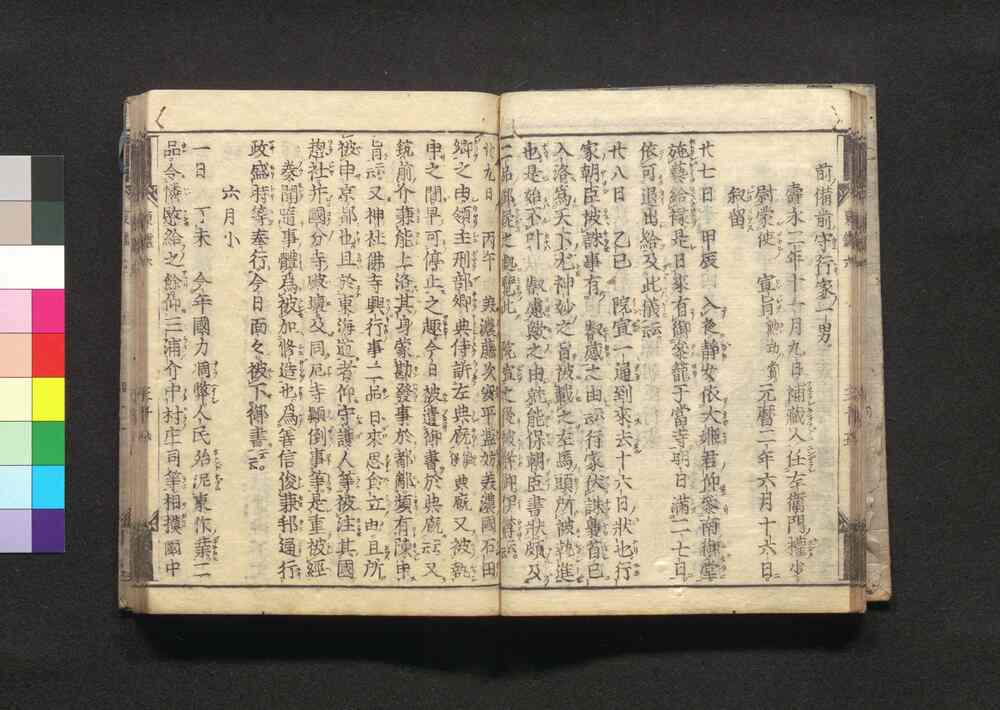 前備前守行家一男
壽永二年十一月九日補藏人任左衛門權少
尉蒙使宣旨勲功賞元暦二年六月十六日
叙留
廿七日甲辰入夜靜女依大姫君仰參南御堂
施藝給禄是日來有御參籠于當寺明日滿二七日
依可退出給及此儀云云
廿八日乙巳院宣一通到來去十六日状也行
家朝臣被誅事有叡感之由云云行家伏誅夷首已
入洛爲天下尤神妙之旨被載之左馬頭所被執進
也是始不叶叡慮歟之由就能保朝臣書状頗及
廿九日丙午美濃藤次安平盖妨美濃國石田
郷之由領主刑部卿典侍訴左典厩御典厩又被執
申之間早可停止之趣今日被遣御書於典厩云云又
筑前介兼能上洛其身蒙勘發事於都鄙頗有陳申
旨云云又神社佛寺興行事二品日來思食立由且所
被申京都也且於東海道者仰守護人等被注其國
惣社并國分寺破壞及同尼寺顛倒事等是重被經
奏聞隨事體爲被加修造也爲善信俊兼邦通行
政盛時等奉行今日面々被下御書云云。
六月小
一日丁未今年國力凋弊人民殆泥東作業二
品令憐愍給之餘仰三浦介中村庄司等相摸國中